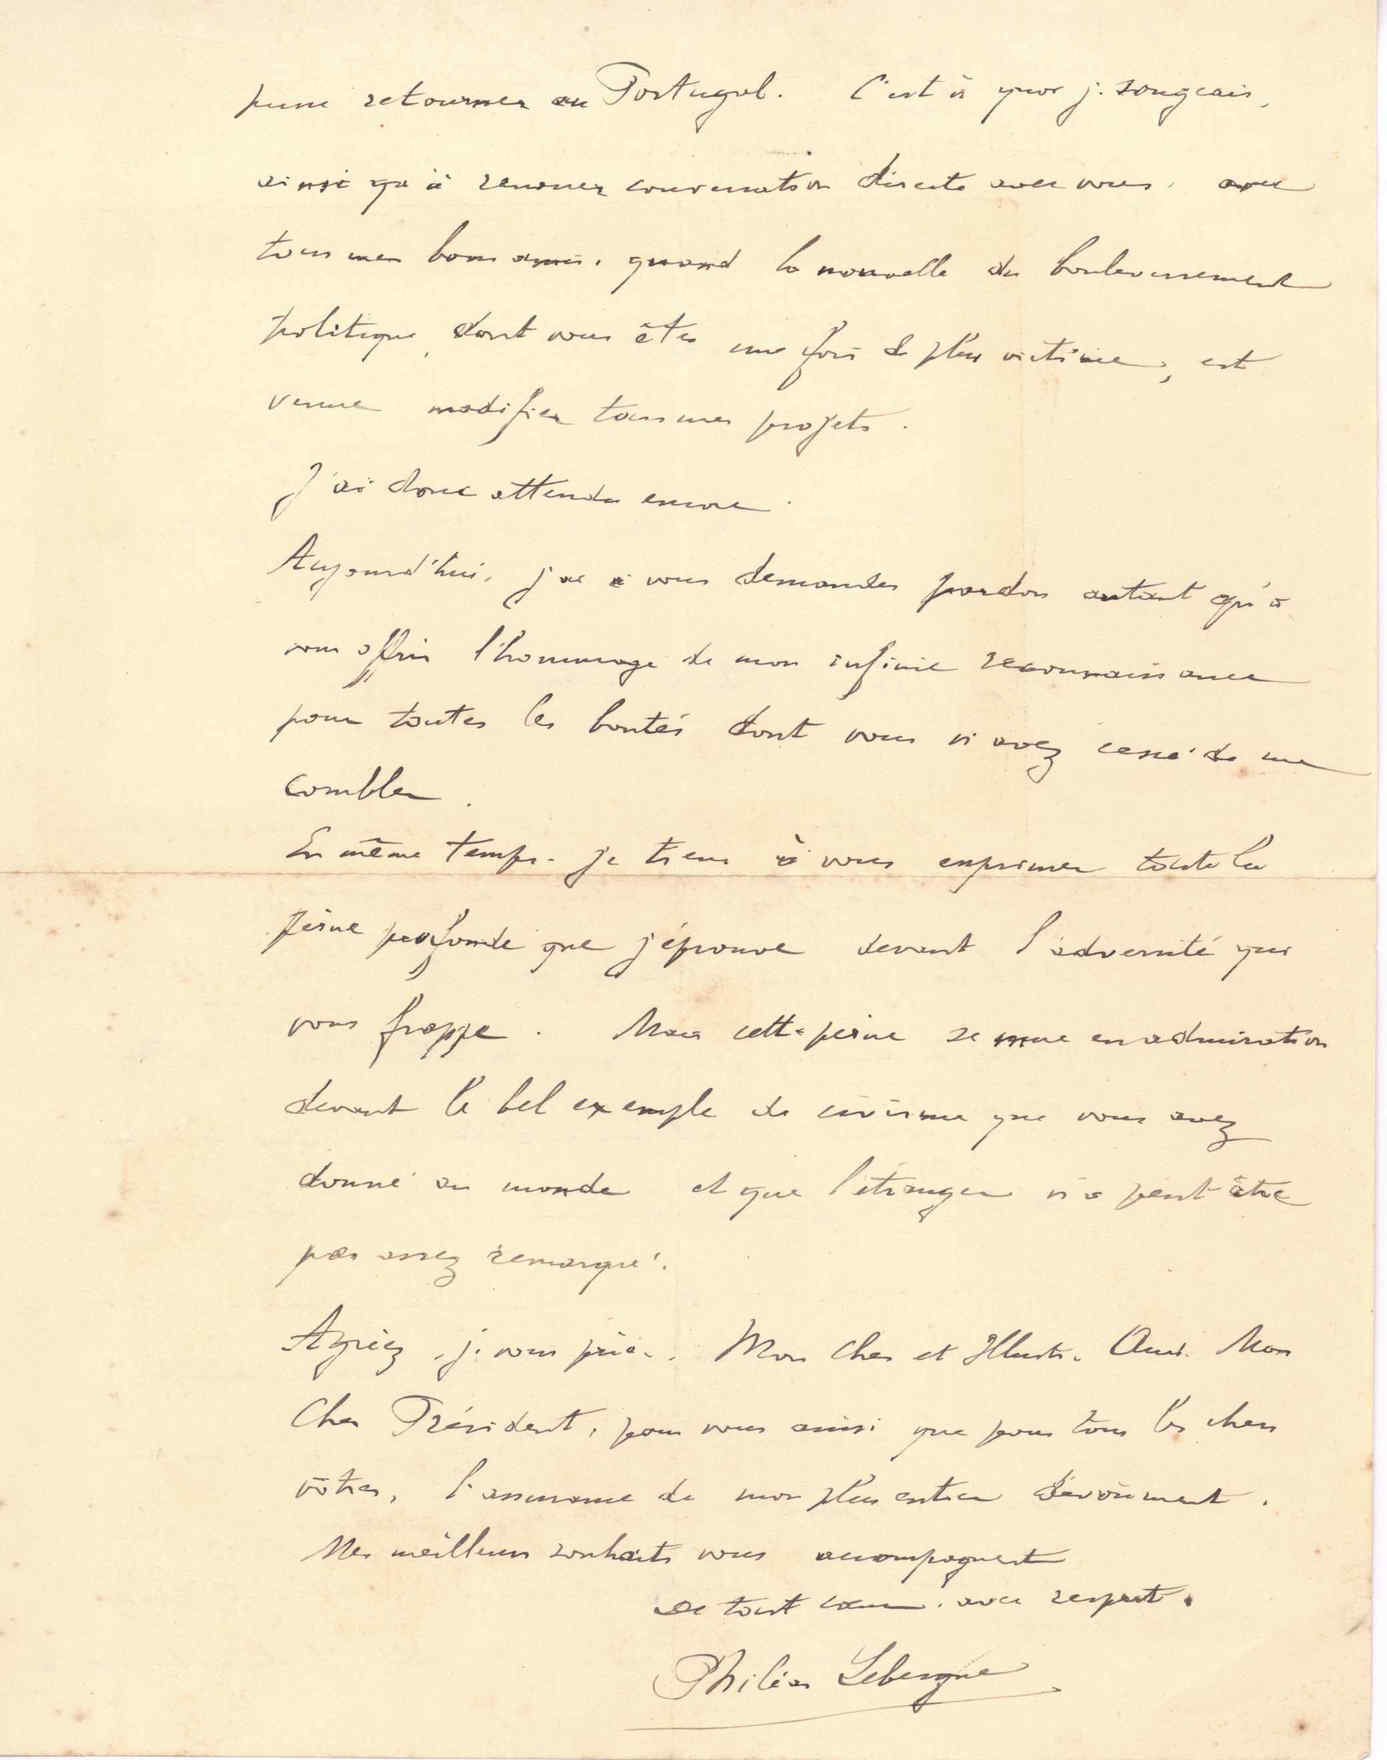 puisse retourner au Portugal. C'est à quoi je songeais,
ainsi qu'à renouer conversation directe avec vous, avec
tous mes bons amis, quand la nouvelle du bouleversement
politique, dont vous êtes une fois de plus victime, est
venue modifier tous mes projets.
J'ai donc attendu encore.
Aujourd'hui, j'ai à vous demander pardon autant qu'à
vous offrir l'hommage de mon infinie reconnaissance
pour toutes les bontés dont vous n'avez cessé de me
combler.
En même temps je tiens à vous exprimer toute la
peine profonde que j'éprouve devant l'adversité qui
vous frappe. Mais cette peine se mue en admiration
devant le bel exemple de civisme que vous avez
donné au monde et que l'étranger n'a peut être
pas assez remarqué.
Agréez, je vous prie, Mon Cher et Illustre Ami, Mon
Cher Président, pour vous ainsi que pour tous les chers
vôtres, l'assurance de mon plus entier dévoûment.
Mes meilleurs souhaits vous accompagnent
de tout coeur, avec respect.
Philéas Lebesgue